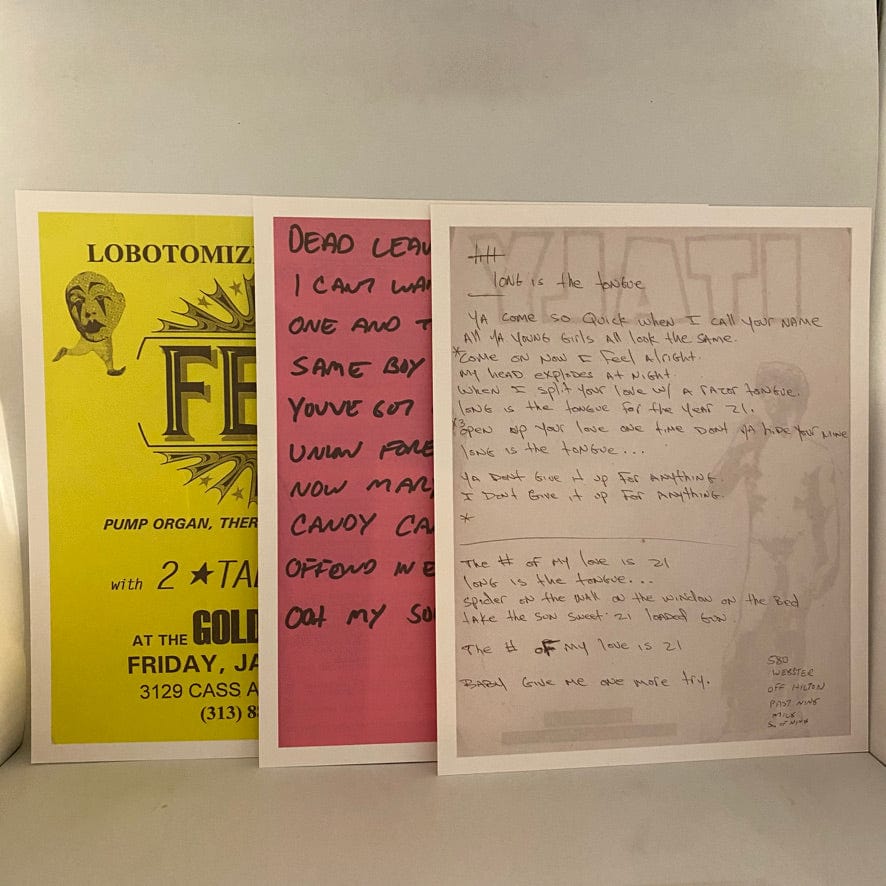 LOBOTOMIZ
FE
PUMP ORGAN, THER
with 2 ★ TA
AT THE GOLD
FRIDAY, JA
3129 CASS A
(313) 8
DEAD LEAV
I CANT WA
ONE AND T
SAME BOY
YOUVE GOT
UNION FORE
NOW MARY
CANDY CA
OFFEND IN E
OOH MY SO
ITALY
LONG is the tongue
YA COME SO QUICK WHEN I CALL YOUR NAME
All YA YOUNG GIRLS All look the SAME.
*COME ON NOW I FEEL AlRIGHT.
MY HEAD EXPLODES AT NIGHT.
WHEN I SPLIT YOUR LOVE W/ A RAZOR TONGUE.
LONG IS THE TONGUE FOR THE YEAR 21.
x3 OPEN UP YOUR LOVE ONE TIME DONT YA HIDE YOUR MINE
LONG IS THE TONGUE...
YA DONT GIVE IT UP FOR ANYTHING.
I DONT GIVE IT UP FOR ANYTHING.
*
The # OF MY LOVE IS 21
LONG IS the tongue...
SPIDER ON THE WALL ON THE WINDOW ON THE BED
TAKE THE SUN SWEET 21 LOADED GUN.
The # OF MY LOVE IS 21
BABY GIVE ME ONE MORE TRY.
580
WEBSTER
OFF HILTON
PAST NINE
MILE
S. OF NINE